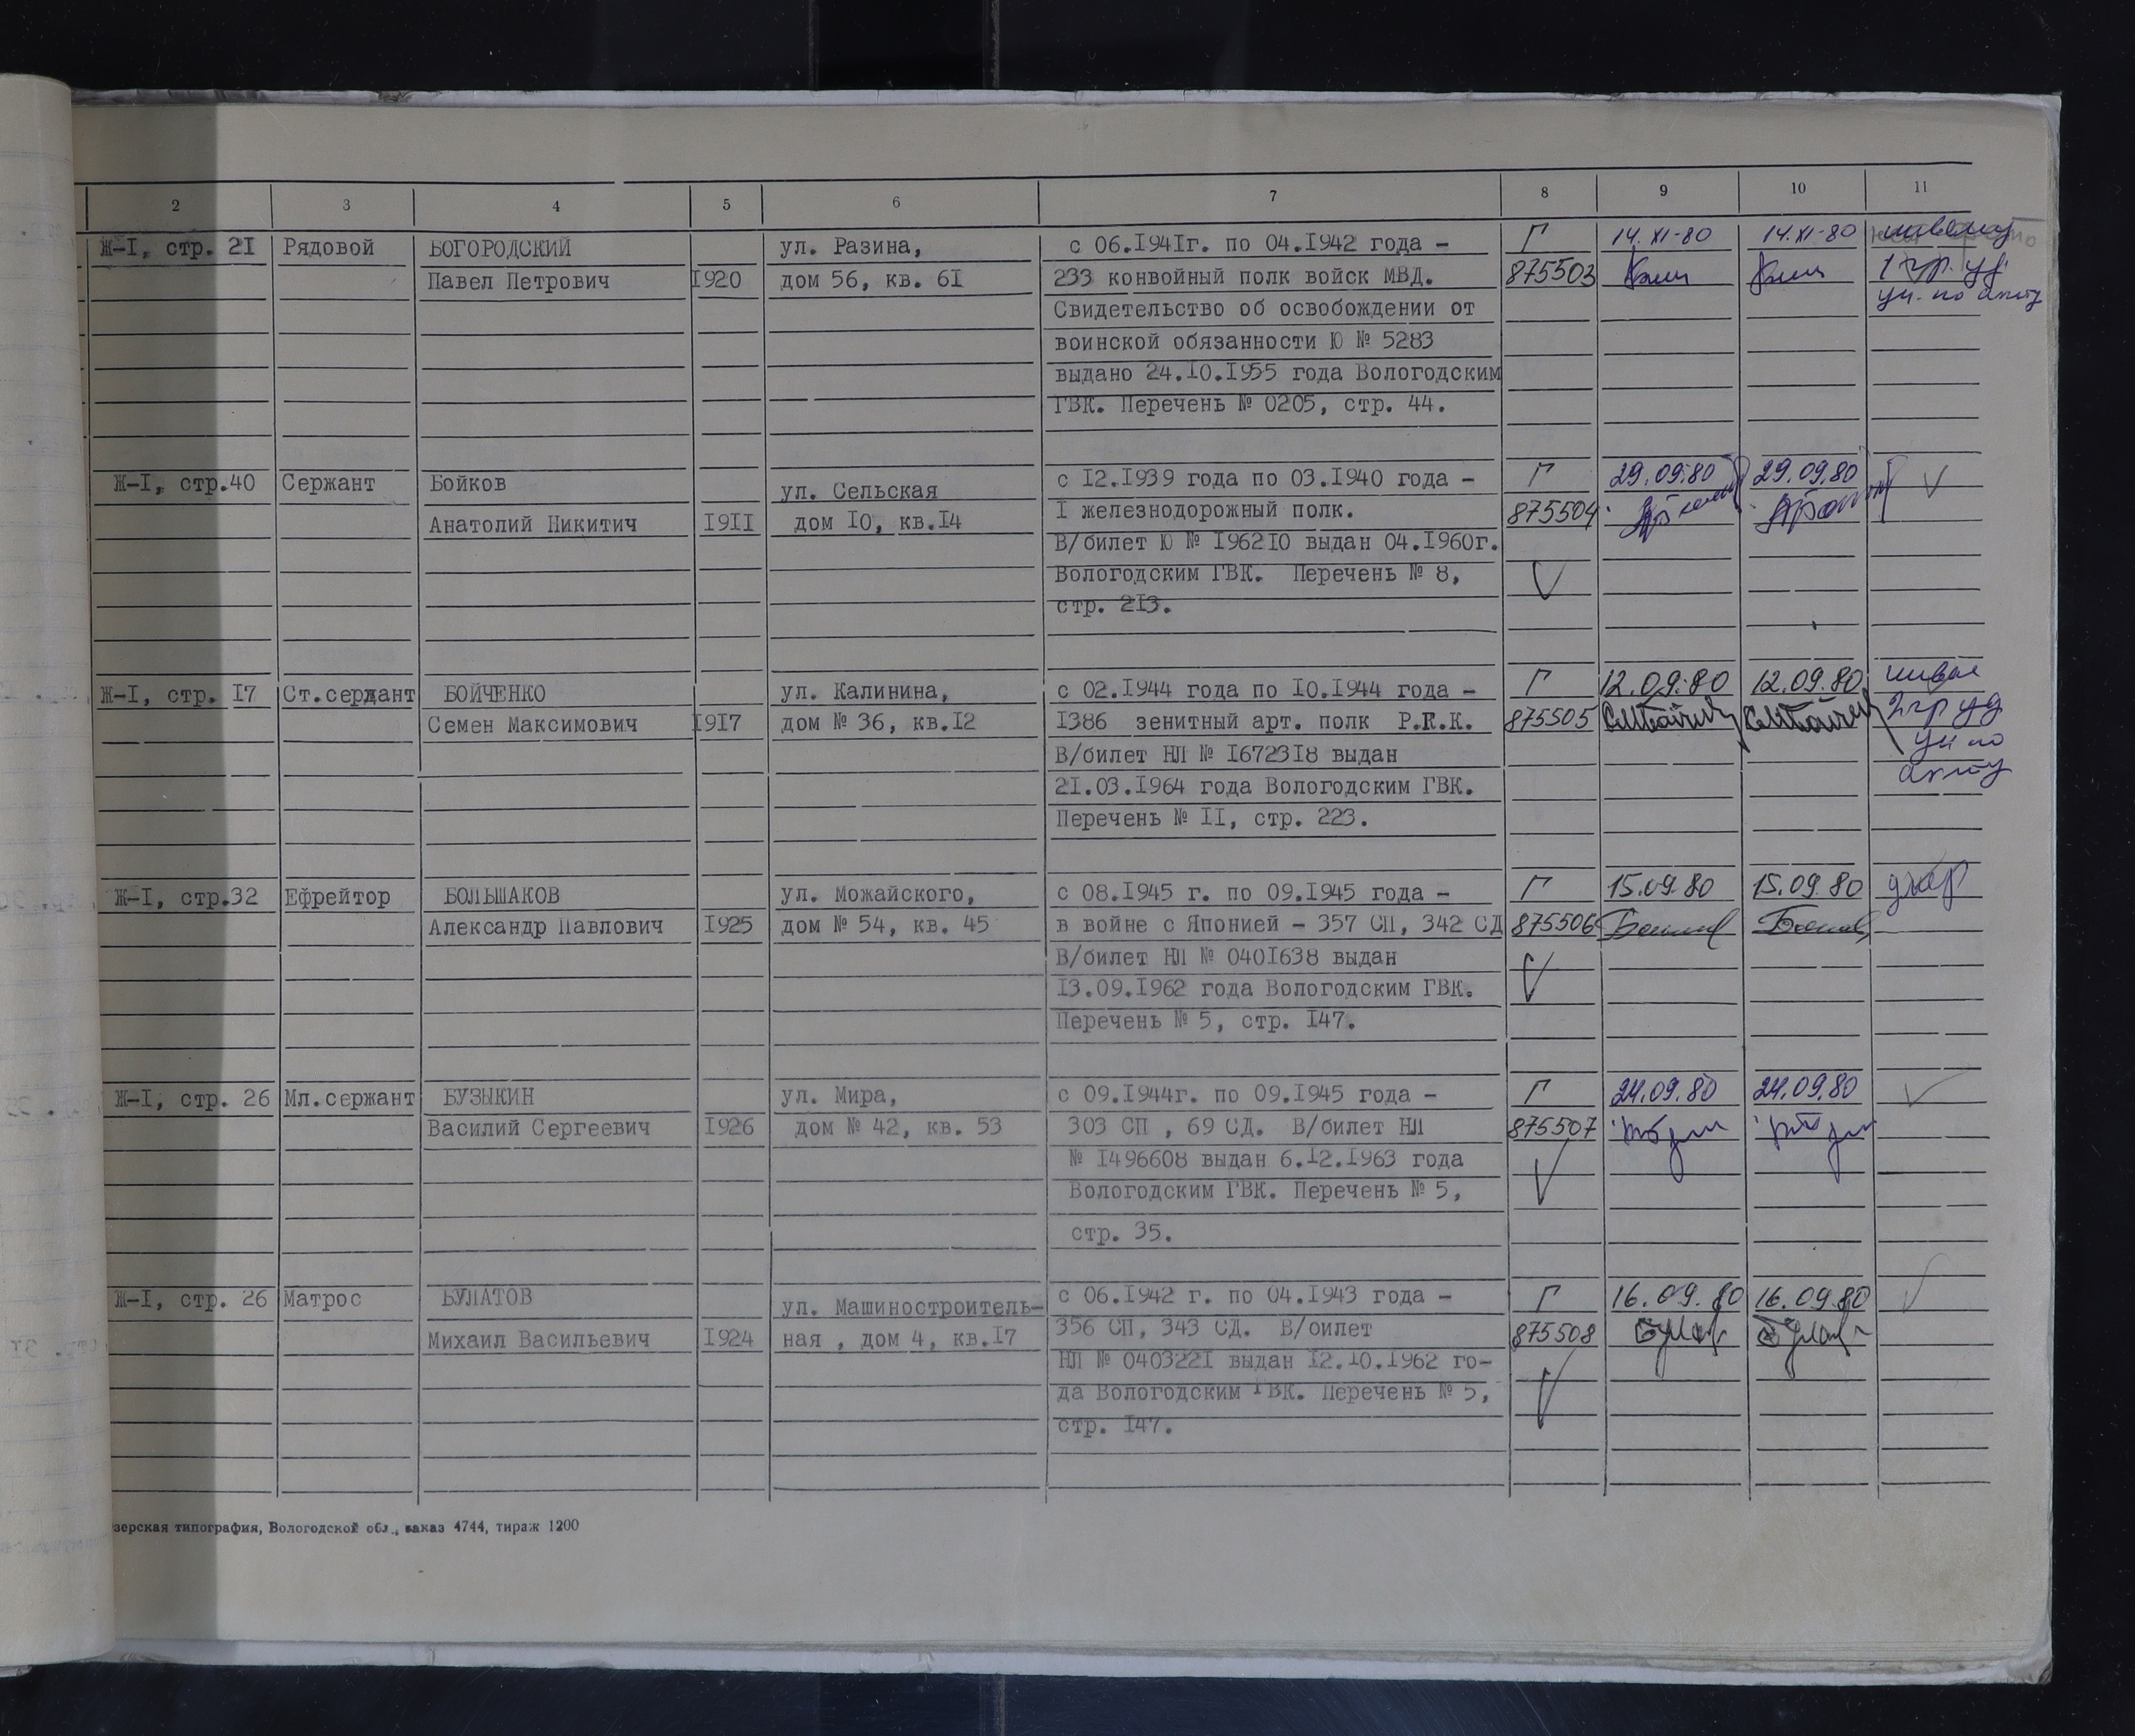 2 3 4 5 6 7 8 9 10 11
Ж-I, стр. 2I Рядовой БОГОРОДСКИЙ ул. Разина, с 06.I94Iг. по 04.I942 года - Г 14.XI-80 14.XI-80
Павел Петрович I920 дом 56, кв. 6I 233 конвойный полк войск МВД. 875503 1 гр. уд.
Свидетельство об освобождении от уч. по акту
воинской обязанности Ю № 5283
выдано 24.I0.I955 года Вологодским
ГВК. Перечень № 0205, стр. 44.
Ж-I, стр.40 Сержант Бойков ул. Сельская с I2.I939 года по 03.I940 года - Г 29.09.80 29.09.80
Анатолий Никитич I9II дом I0, кв.I4 I железнодорожный полк. 875504
В/билет Ю № I962I0 выдан 04.I960г.
Вологодским ГВК. Перечень № 8,
стр. 2I3.
Ж-I, стр. I7 Ст.сержант БОЙЧЕНКО ул. Калинина, с 02.I944 года по I0.I944 года - Г 12.09.80 12.09.80
Семен Максимович I9I7 дом № 36, кв.I2 I386 зенитный арт. полк Р.Г.К. 875505 2 гр уд
В/билет НЛ № I6723I8 выдан уч по
2I.03.I964 года Вологодским ГВК. акту
Перечень № II, стр. 223.
Ж-I, стр.32 Ефрейтор БОЛЬШАКОВ ул. Можайского, с 08.I945 г. по 09.I945 года - Г 15.09.80 15.09.80
Александр Павлович I925 дом № 54, кв. 45 в войне с Японией - 357 СП, 342 СД 875506
В/билет НЛ № 040I638 выдан
I3.09.I962 года Вологодским ГВК.
Перечень № 5, стр. I47.
Ж-I, стр. 26 Мл.сержант БУЗЫКИН ул. Мира, с 09.I944г. по 09.I945 года - Г 24.09.80 24.09.80
Василий Сергеевич I926 дом № 42, кв. 53 303 СП , 69 СД. В/билет НЛ 875507
№ I496608 выдан 6.I2.I963 года
Вологодским ГВК. Перечень № 5,
стр. 35.
Ж-I, стр. 26 Матрос БУЛАТОВ ул. Машиностроитель- с 06.I942 г. по 04.I943 года - Г 16.09.80 16.09.80
Михаил Васильевич I924 ная , дом 4, кв.I7 356 СП, 343 СД. В/билет 875508
НЛ № 040322I выдан I2.I0.I962 го-
да Вологодским ГВК. Перечень № 5,
стр. I47.
зерская типография, Вологодской обл., заказ 4744, тираж 1200